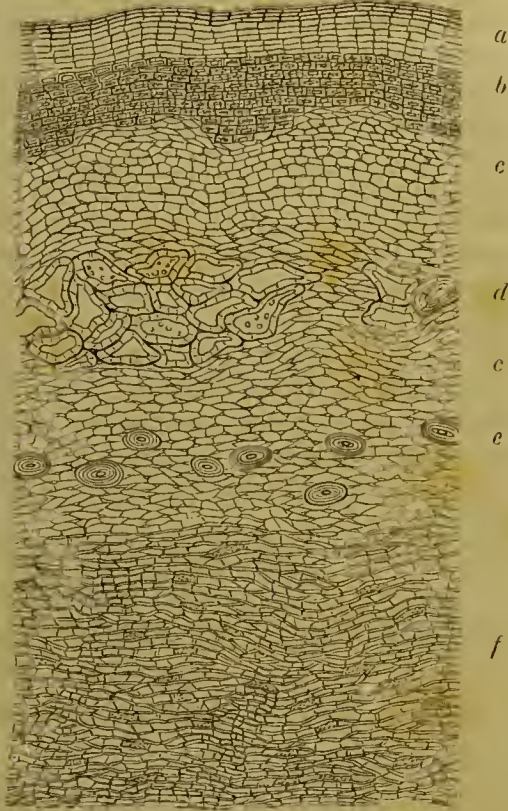 a
b
c
d
c
e
f